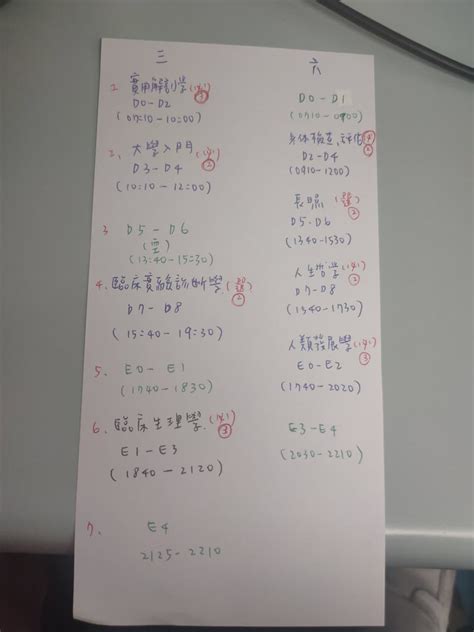 三
1. 實用解剖學(必)
③
D0-D2
(07:10-10:00)
2. 大學入門(必)
②
D3-D4
(10:10-12:00)
3 D5-D6
(空)
(13:40-15:30)
4. 臨床實驗診斷學(選)
②
D7-D8
(15:40-19:30)
5. E0-E1
(1740-1830)
6. 臨床生理學(必)
③
E1-E3
(1840-2120)
7. E4
2125-2210
六
D0-D1
(0710-0900)
身体檢查、評估
D2-D4
(0910-1200)
長照(選)
②
D5-D6
(1340-1530)
人生哲學(必)
②
D7-D8
(1540-1730)
人類發展學(必)
③
E0-E2
(1740-2020)
E3-E4
(2030-2210)